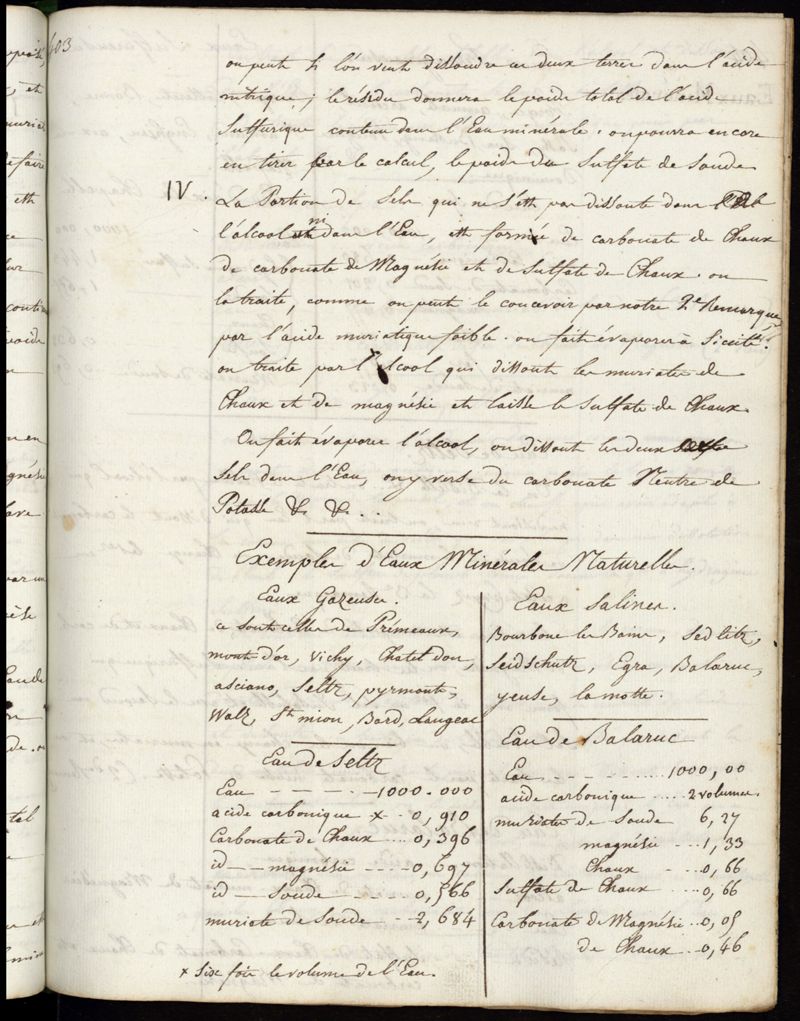 403
on peut si l'on veut dissoudre ces deux terres dans l'acide
nitrique; le résidu donnera le poids total de l'acide
Sulfurique contenu dans l'Eau minérale. on pourra encore
en tirer par le calcul, le poids du Sulfate de Soude
IV. La Portion de Sels qui ne s'est pas dissoute dans
l'alcool ni dans l'Eau, est formée de carbonate de Chaux
de carbonate de Magnésie et de Sulfate de Chaux. on
la traite, comme on peut le concevoir par notre 2e Remarque,
par l'acide muriatique foible. on fait évaporer à Siccité.
on traite par l'alcool qui dissout les muriates de
Chaux et de magnésie et laisse le Sulfate de Chaux.
On fait évaporer l'alcool, on dissout les deux
Sels dans l'Eau, on y verse du carbonate Neutre de
Potasse &c &c ..
Exemples d'Eaux Minérales Naturelles.
Eaux Gazeuses.
ce sont celles de Prémeaux,
mont d'or, Vichy, Chatel don,
asciano, Seltz, pyrmont,
Walz, St mion, Bard, Langeac
Eau de Seltz
Eau - - - - - 1000.000
acide carbonique x - 0,910
Carbonate de Chaux .... 0,396
id — magnésie - - - - 0,697
id — Soude - - - - - 0,566
muriate de Soude - - 2,684
x Six fois le volume de l'Eau.
Eaux Salines.
Bourbone les Bains, Sedlitz,
Seidschutz, Egra, Balaruc,
yeuse, la motte.
Eau de Balaruc
Eau - - - - ..... 1000,00
acide carbonique ..... 2 volumes
muriate de Soude 6,27
magnésie - - - 1,33
Chaux - ... 0,66
Sulfate de Chaux .... 0,66
Carbonate de Magnésie .. 0,05
de Chaux ... 0,46